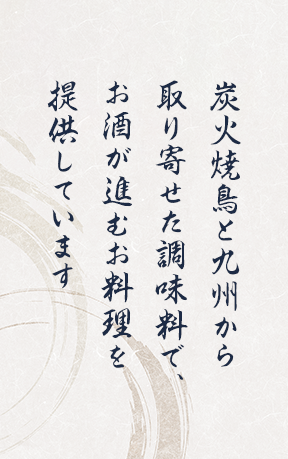 炭火焼鳥と九州から
取り寄せた調味料で、
お酒が進むお料理を
提供しています